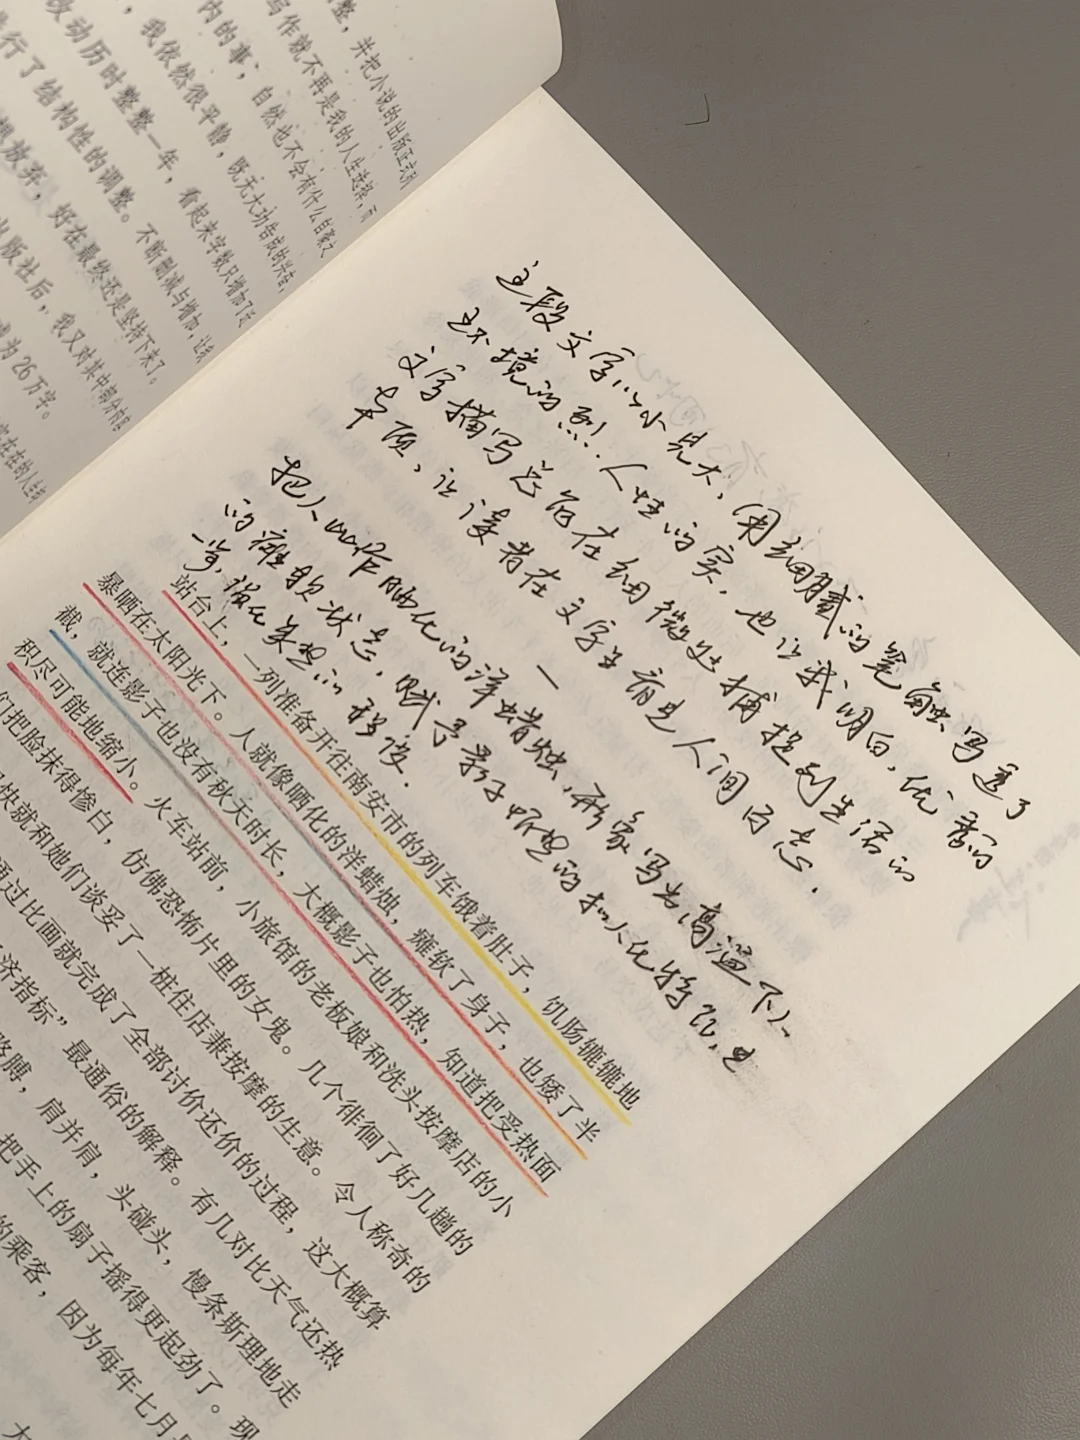 整，并把小说的出版正式列
写作就不再是我的人生选择，而
内的事，自然也不会有什么自豪又
，我依然很平静，既无大功告成的兴奋
改动历时整整一年，看起来字数只增加了
行了结构性的调整。不断删减与增加，让
想放弃，好在最终还是坚持下来了。
出版社后，我又对其中部分内容
为26万字。
实在在的人生
这段文字以小见大，用细腻的笔触写透了
环境的烈，人性的实，也让我明白，优秀的
文字描写总能在细微处捕捉到生活的
本质，让读者在文字里看见人间百态。
把人比作晒化的洋蜡烛，形象写出高温下人
的瘫软状态，赋予影子怕热的拟人化特征，也
站台上，一列准备开往南安市的列车饿着肚子，饥肠辘辘地
暴晒在太阳光下。人就像晒化的洋蜡烛，瘫软了身子，也矮了半
截，就连影子也没有秋天时长，大概影子也怕热，知道把受热面
积尽可能地缩小。火车站前，小旅馆的老板娘和洗头按摩店的小
们把脸抹得惨白，仿佛恐怖片里的女鬼。几个徘徊了好几趟的
快就和她们谈妥了一桩住店兼按摩的生意。令人称奇的
通过比画就完成了全部讨价还价的过程，这大概算
济指标”最通俗的解释。有几对比天气还热
胳膊，肩并肩，头碰头，慢条斯理地走
把手上的扇子摇得更起劲了。现
的乘客，因为每年七月
大